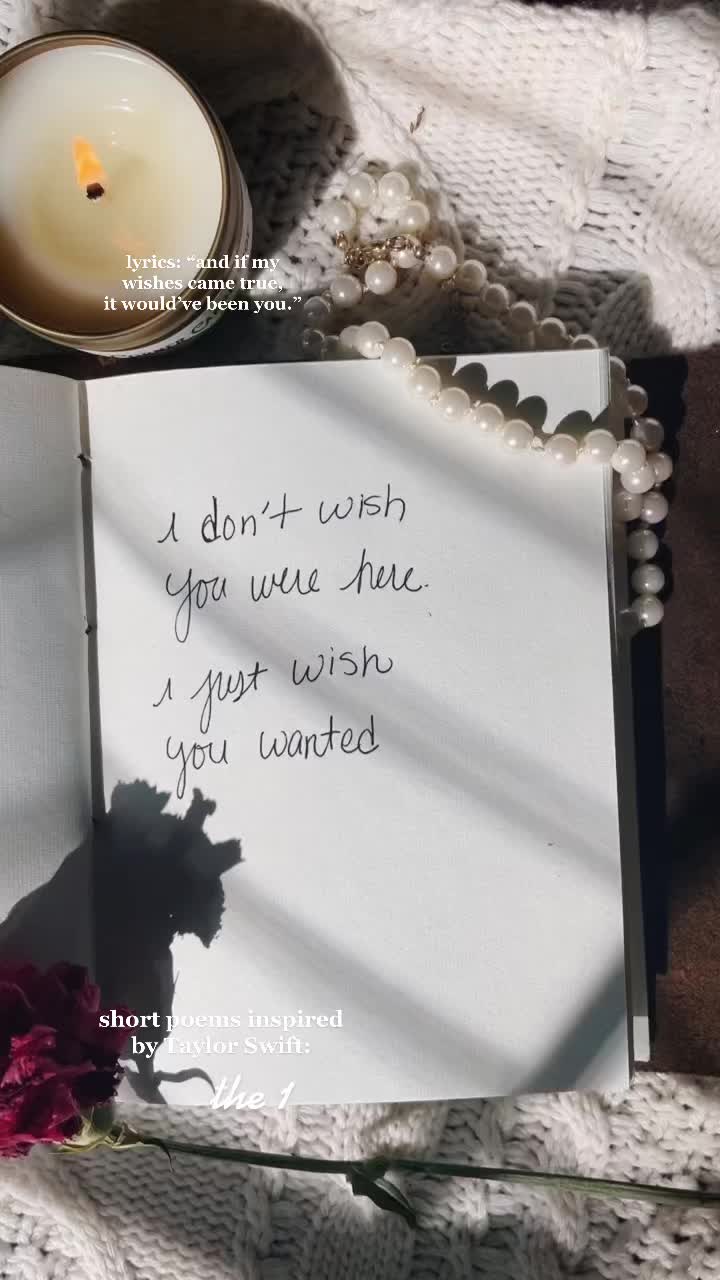 lyrics: “and if my
wishes came true,
it would’ve been you.”
i don't wish
you were here.
i just wish
you wanted
short poems inspired
by Taylor Swift:
the 1